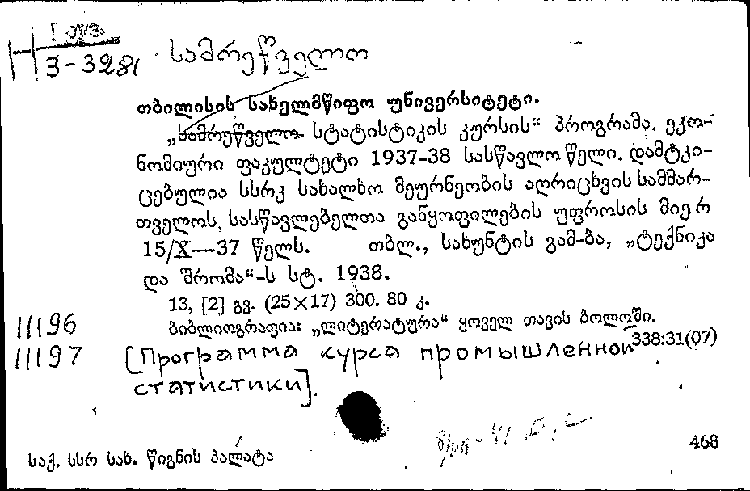 3-3281 სამრეწველო
თბილისის სახელმწიფო უნივერსიტეტი.
„სამრეწველო სტატისტიკის კურსის“ პროგრამა. ეკო-
ნომიური ფაკულტეტი 1937-38 სასწავლო წელი. დამტკი-
ცებულია სსრკ სახალხო მეურნეობის აღრიცხვის სამმარ-
თველოს, სასწავლებელთა განყოფილების უფროსის მიერ
15/X—37 წელს. თბლ., სახუნტის გამ-ბა, „ტექნიკა
და შრომა“-ს სტ. 1938.
13, [2] გვ. (25×17) 300. 80 კ.
ბიბლიოგრაფია: „ლიტერატურა“ ყოველ თავის ბოლოში.
11196
338:31(07)
11197 [Программа курса промышленной
статистики].
468
საქ. სსრ სახ. წიგნის პალატა